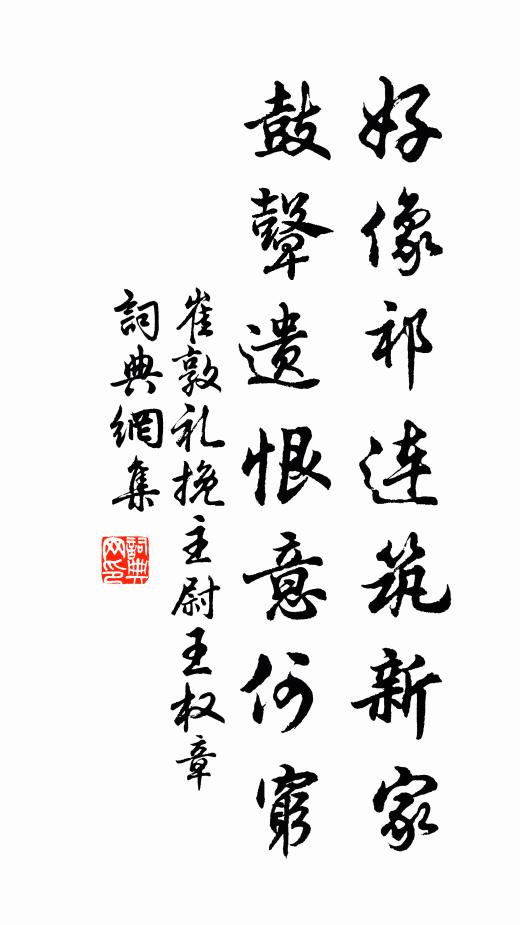 好像祁连筑新家
鼓鼙遗恨意何穷
崔敦礼挽主尉王权章
詞典網集
詞典网印